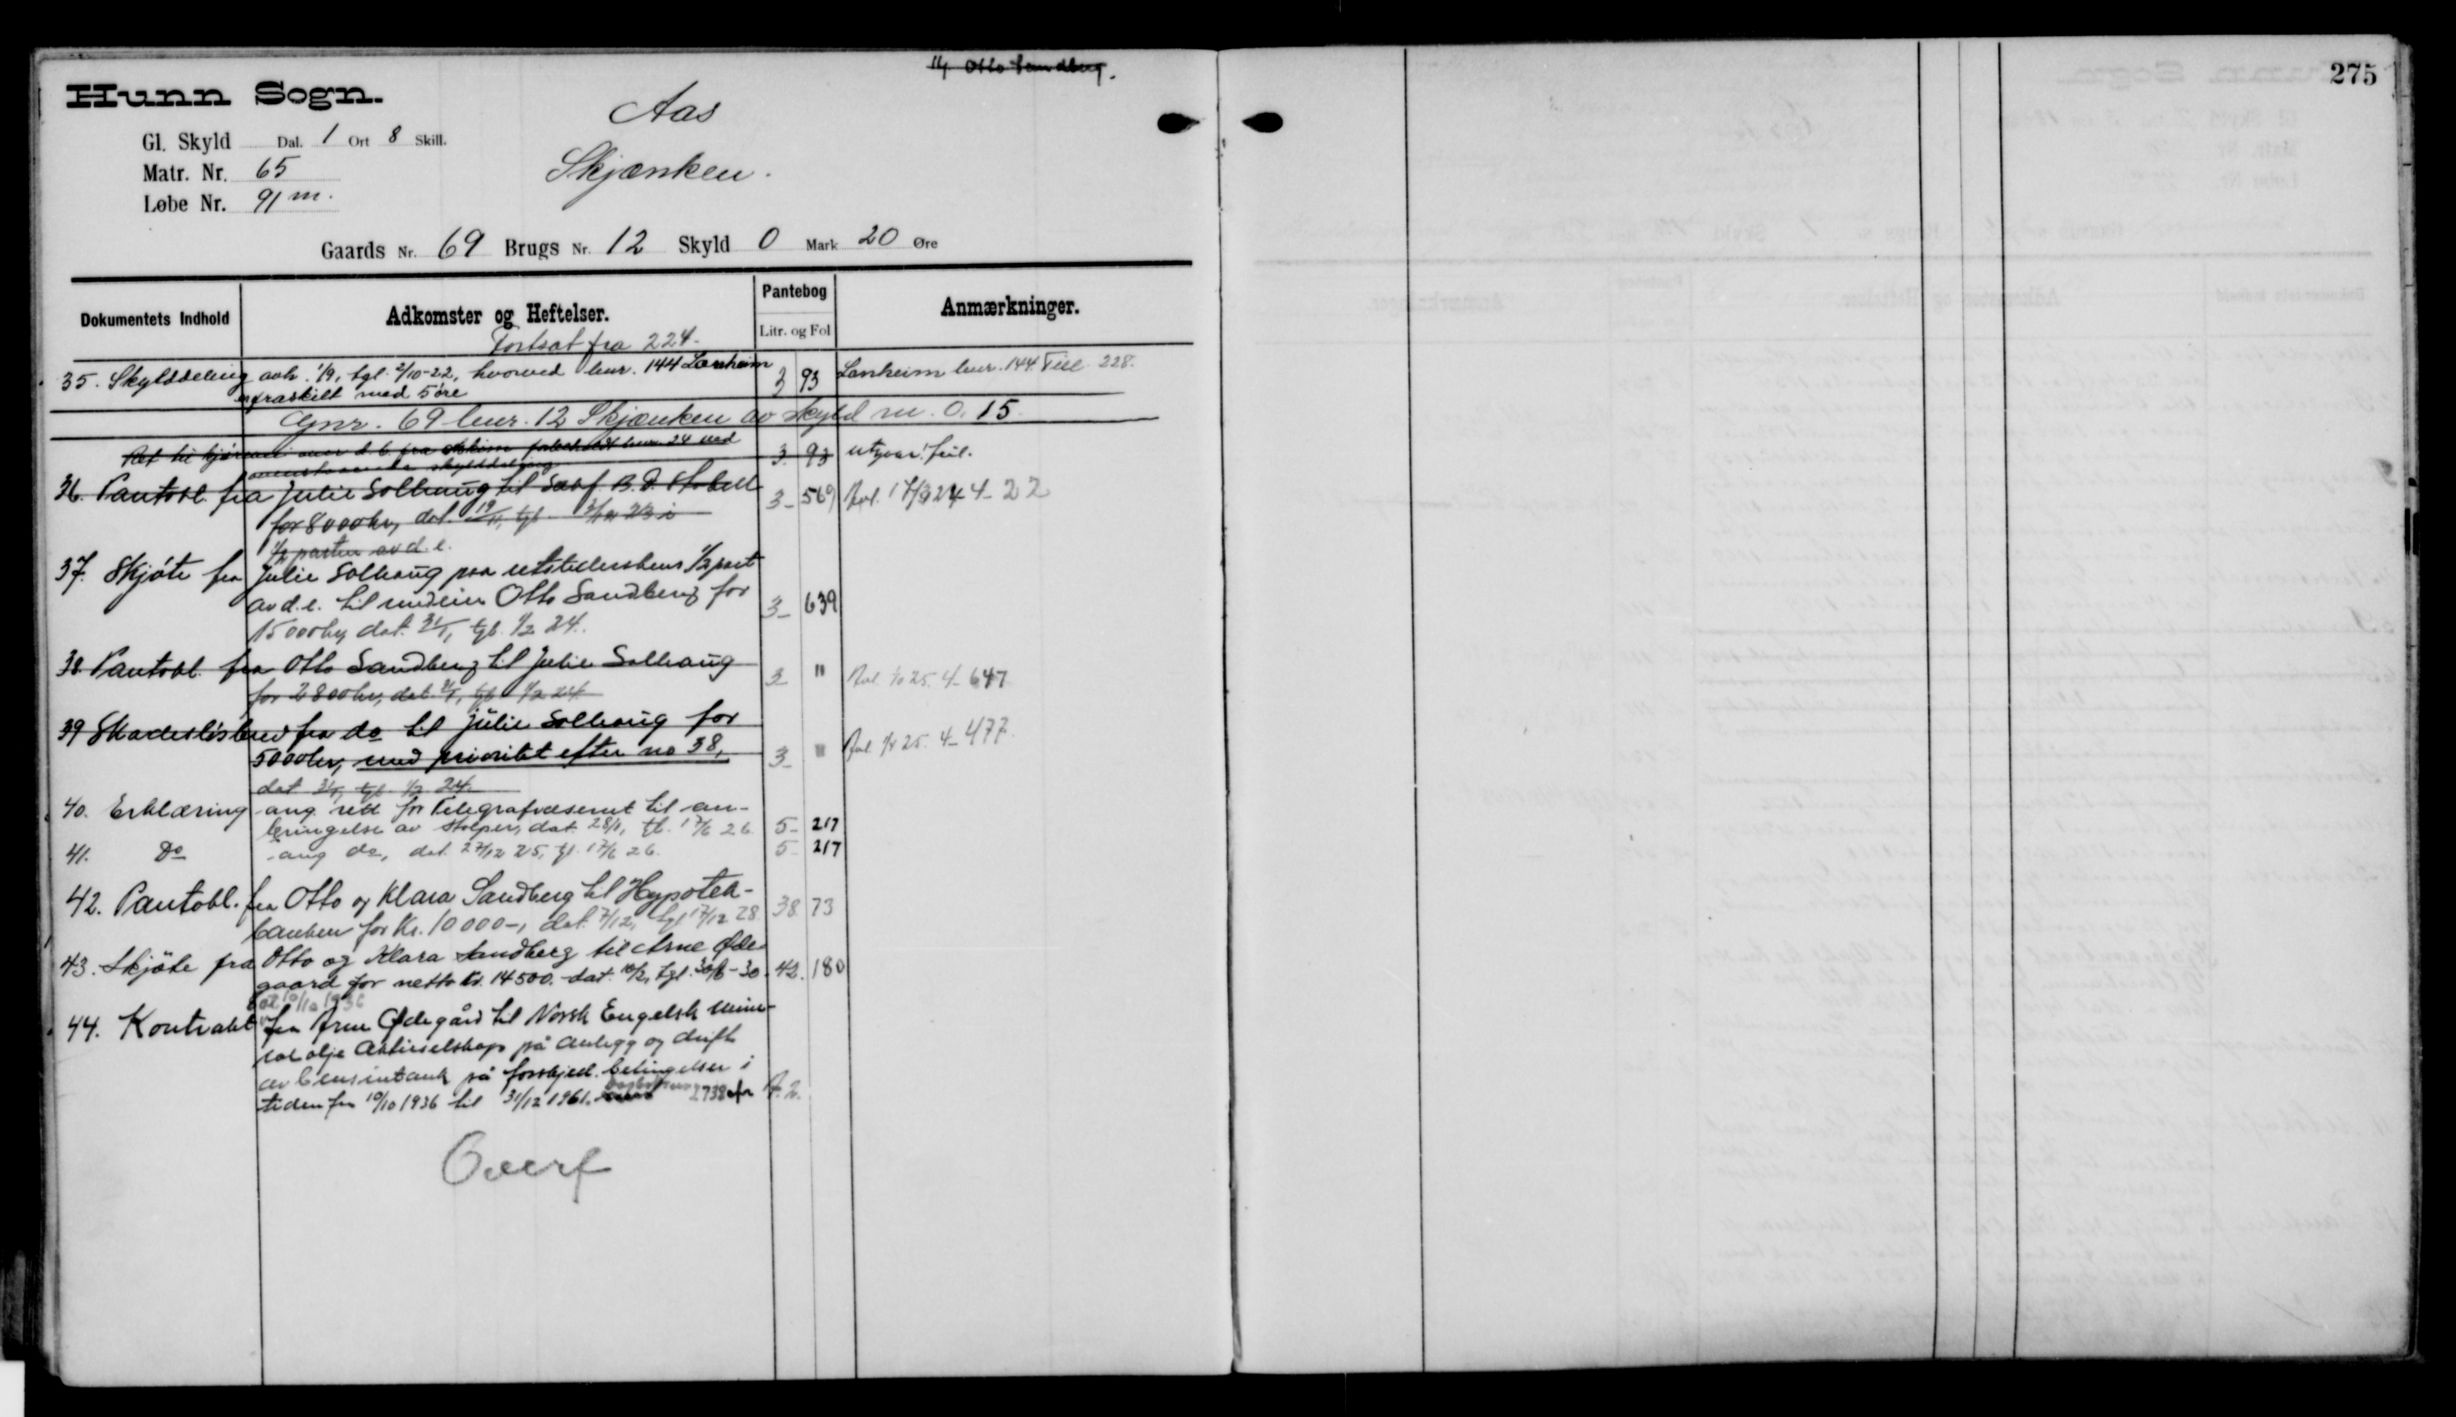 Hj. Otto Sandberg.
275
Hunn Sogn.
Aas
Gl. Skyld Dal. 1 Ort 8 Skill.
Matr. Nr. 65
Skjænken.
Løbe Nr. 91 m.
Gaards Nr. 69 Brugs Nr. 12 Skyld 0 Mark 20 Øre
Dokumentets Indhold
Adkomster og Heftelser.
Pantebog
Litr. og Fol
Anmærkninger.
Fortsat fra 224.
35. Skylddeling avh. 1/9, tgl. 2/10-22, hvorved bnr. 144 Lanheim 3 93 Lanheim bnr. 144 Fell 228.
er fraskilt med 5 øre
Gnr. 69 bnr. 12 Skjænken av skyld m. 0.15
Ret til bnr. 24 ved 3 93 utgaar: feil.
ovenstaaende skylddeling
36. Pantobl. fra Julie Solhaug til 3 - 569 Avl. 17/9 24 4 - 22
for 8000 kr, dat. 19/11, tgl.
1/2 parten av d. e.
37. Skjøte fra Julie Solhaug paa utstederskens 1/2 part
av d. e. til medeier Otto Sandberg for 3 - 639
15 000 kr dat. 31/1, tgl. 1/2 24.
38. Pantobl. fra Otto Sandberg til Julie Solhaug 3 " Avl. 25. 4 - 647
for 2800 kr, dat. 31/1, tgl. 1/2 24
39 Skadesløsbrev fra do til Julie Solhaug for
5000 kr, med prioritet efter no 38, 3 - " Avl. 25. 4 - 477.
dat 31/1, tgl 1/2 24.
40. Erklæring ang. rett for Telegrafvæsenet til an-
bringelse av stolper, dat. 28/1, tl. 17/6 26. 5 - 217
41. Do ang do, dat. 27/12 25, tl. 17/6 26. 5 - 217
42. Pantobl. fra Otto og Klara Sandberg til Hypotek-
banken for Kr. 10 000-, dat. 7/12, tgl 17/12 28. 38. 73
43. Skjøte fra Otto og Klara Sandberg til Arne Øde-
gaard for netto kr. 14500. dat. 10/2, tgl. 30/6 - 30. 42. 180
dat 10/10 1936
44. Kontrakt fra Arne Ødegård til Norsk Engelsk Mine-
ral olje Aktieselskap på anlegg og drift
av bensintank på forskjed. betingelser i
tiden fra 10/10 1936 til 31/12 1961. Dagboknr 2738 A. 2.
Overf